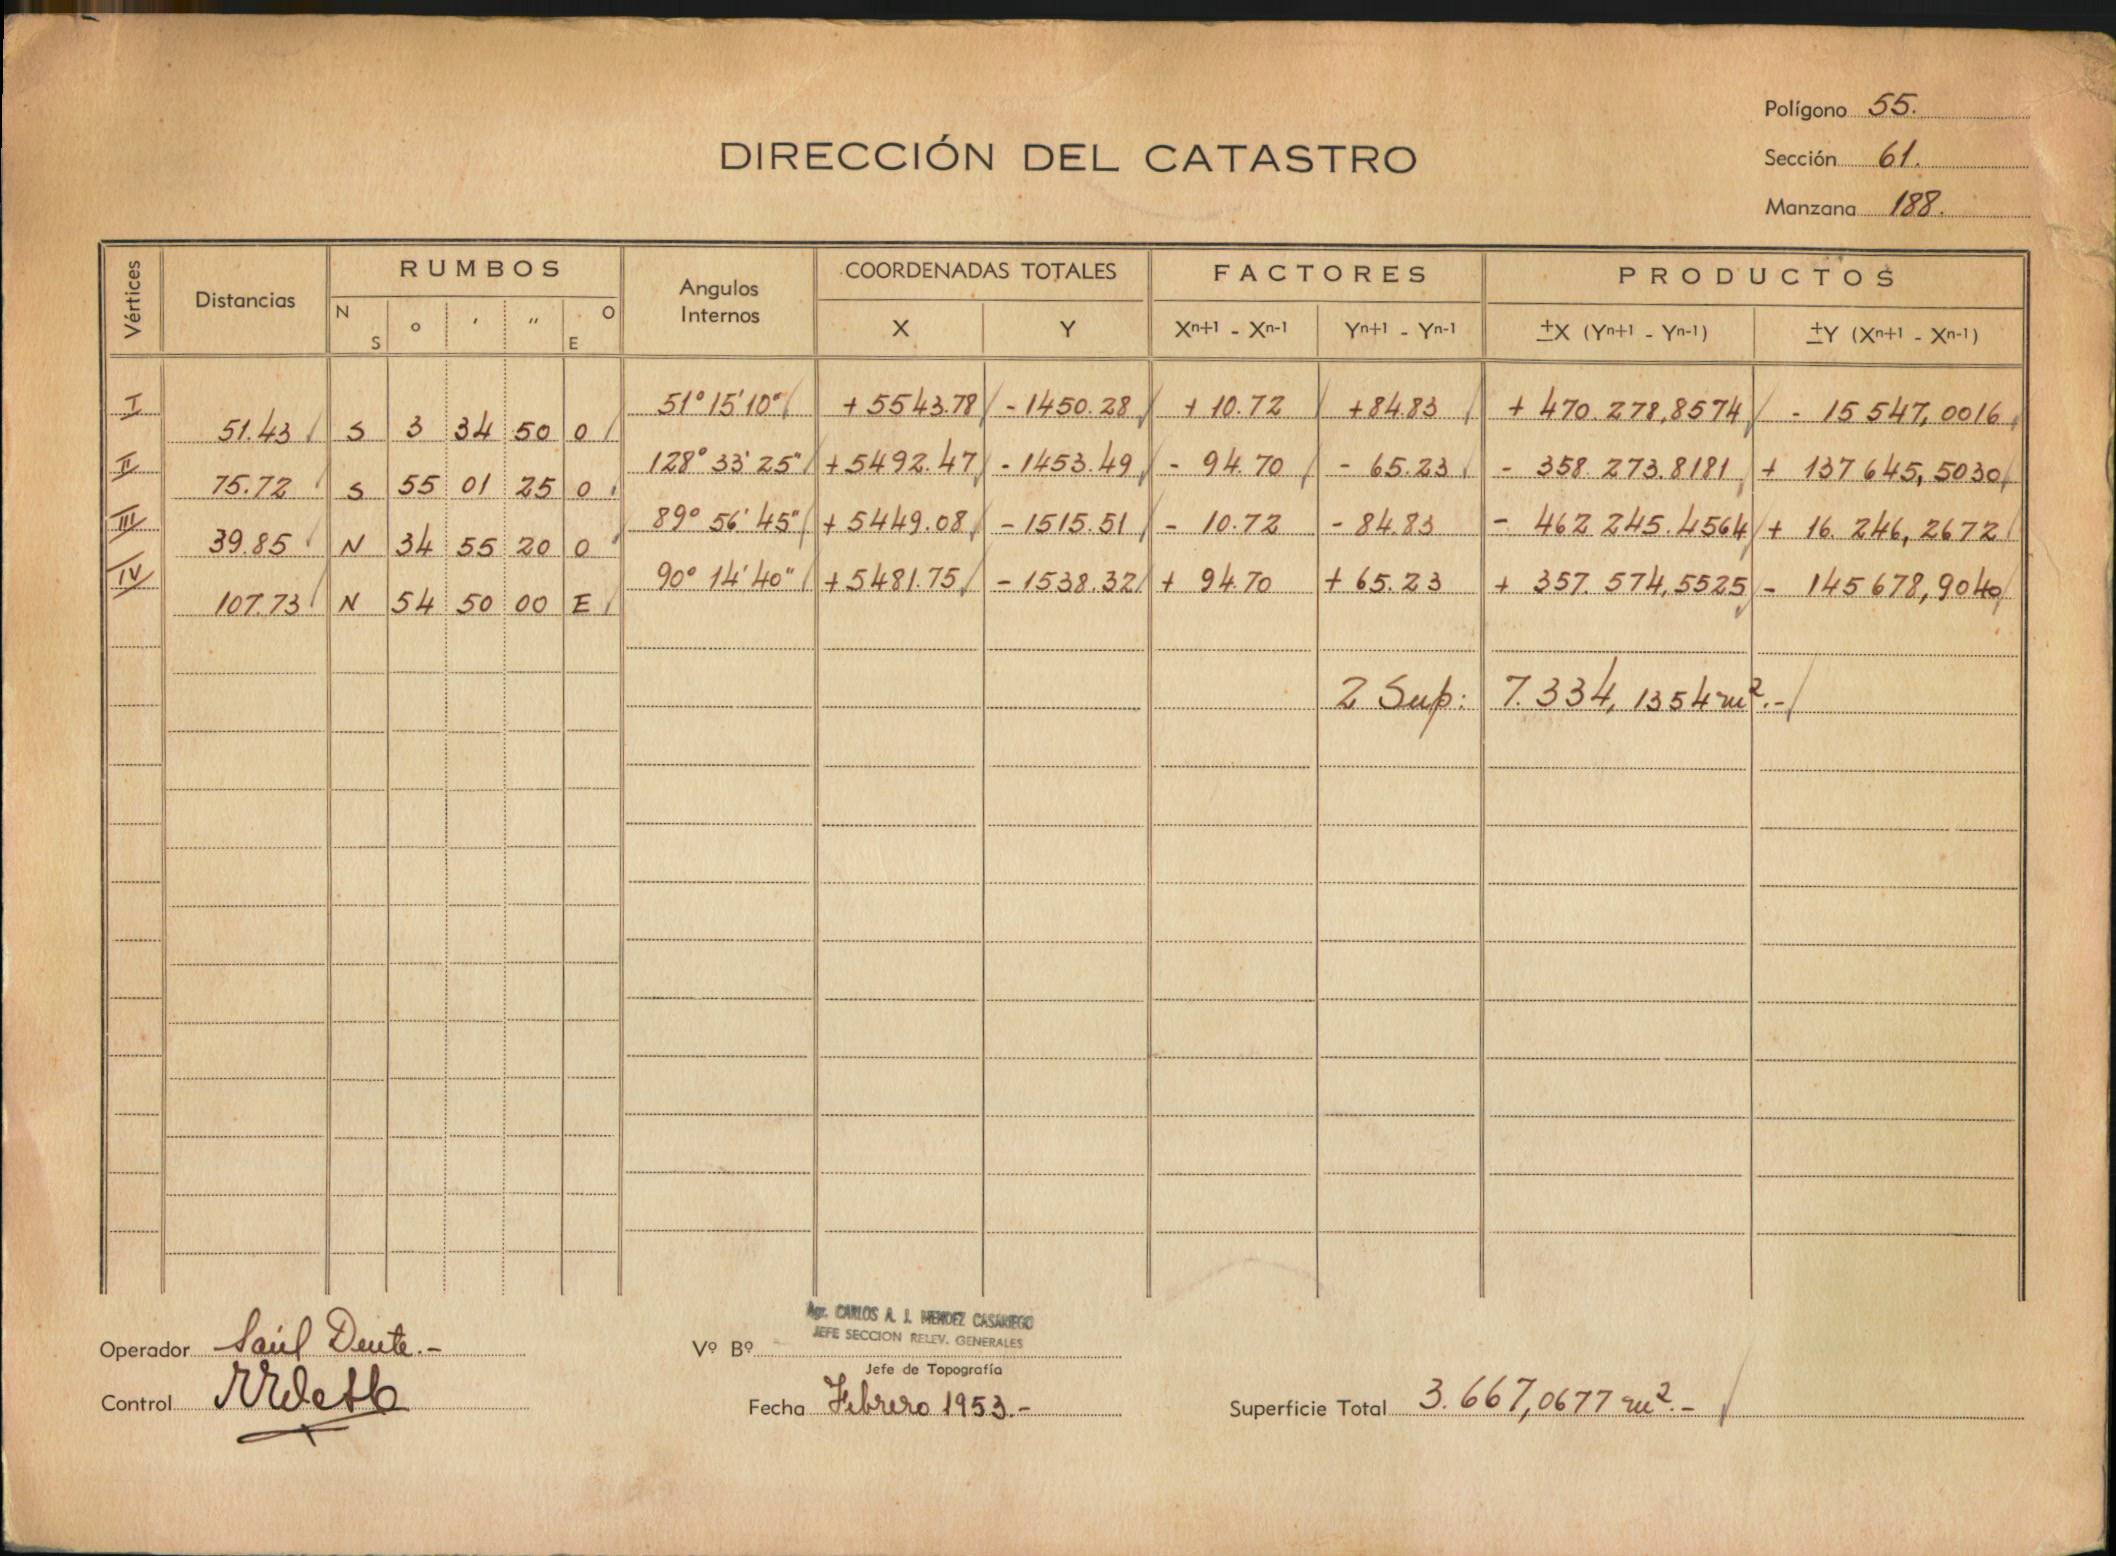 Polígono 55.
DIRECCIÓN DEL CATASTRO
Sección 61.
Manzana 188.
Vértices Distancias RUMBOS Angulos Internos COORDENADAS TOTALES FACTORES PRODUCTOS
N S o ' " O E X Y Xn+1 - Xn-1 Yn+1 - Yn-1 ±X (Yn+1 - Yn-1) ±Y (Xn+1 - Xn-1)
I 51°15'10" +5543.78 -1450.28 +10.72 +84.83 +470.278,8574 -15547,0016
51.43 S 3 34 50 O
II 128°33'25" +5492.47 -1453.49 -94.70 -65.23 -358.273.8181 +137645,5030
75.72 S 55 01 25 O
III 89°56'45" +5449.08 -1515.51 -10.72 -84.83 -462.245.4564 +16.246,2672
39.85 N 34 55 20 O
IV 90°14'40" +5481.75 -1538.32 +94.70 +65.23 +357.574,5525 -145678,9040
107.73 N 54 50 00 E
2 Sup: 7.334,1354 m².-
Operador Saúl Dente.-
Vº Bº Agr. CARLOS A. J. MENDEZ CASARIEGO
JEFE SECCION RELEV. GENERALES
Jefe de Topografía
Control
Fecha Febrero 1953.-
Superficie Total 3.667,0677 m².-